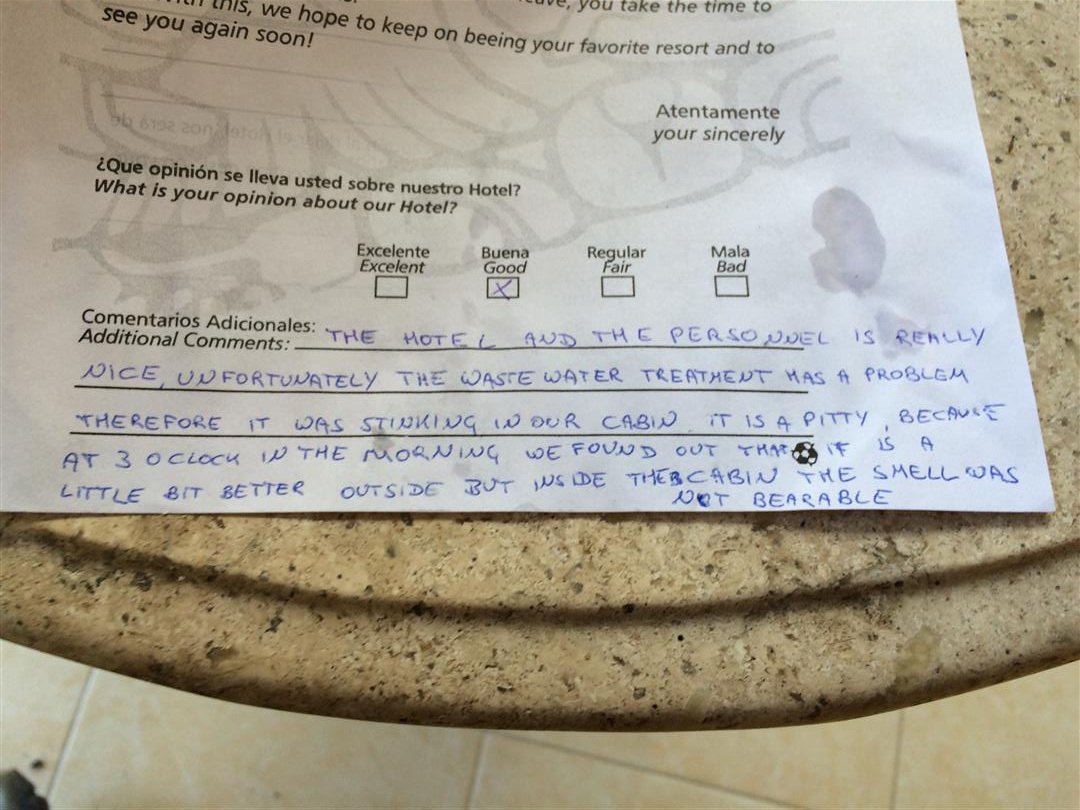 you take the time to
this, we hope to keep on beeing your favorite resort and to
see you again soon!
Atentamente
your sincerely
¿Que opinión se lleva usted sobre nuestro Hotel?
What is your opinion about our Hotel?
Excelente Buena Regular Mala
Excelent Good Fair Bad
X
Comentarios Adicionales:
Additional Comments: THE HOTEL AND THE PERSONNEL IS REALLY
NICE, UNFORTUNATELY THE WASTE WATER TREATMENT HAS A PROBLEM
THEREFORE IT WAS STINKING IN OUR CABIN. IT IS A PITTY, BECAUSE
AT 3 O CLOCK IN THE MORNING WE FOUND OUT THAT IT IS A
LITTLE BIT BETTER OUTSIDE BUT INSIDE THE CABIN THE SMELL WAS
NOT BEARABLE